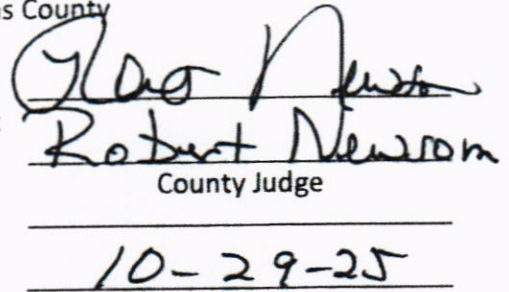 s County
Robert Newsom
County Judge
10-29-25